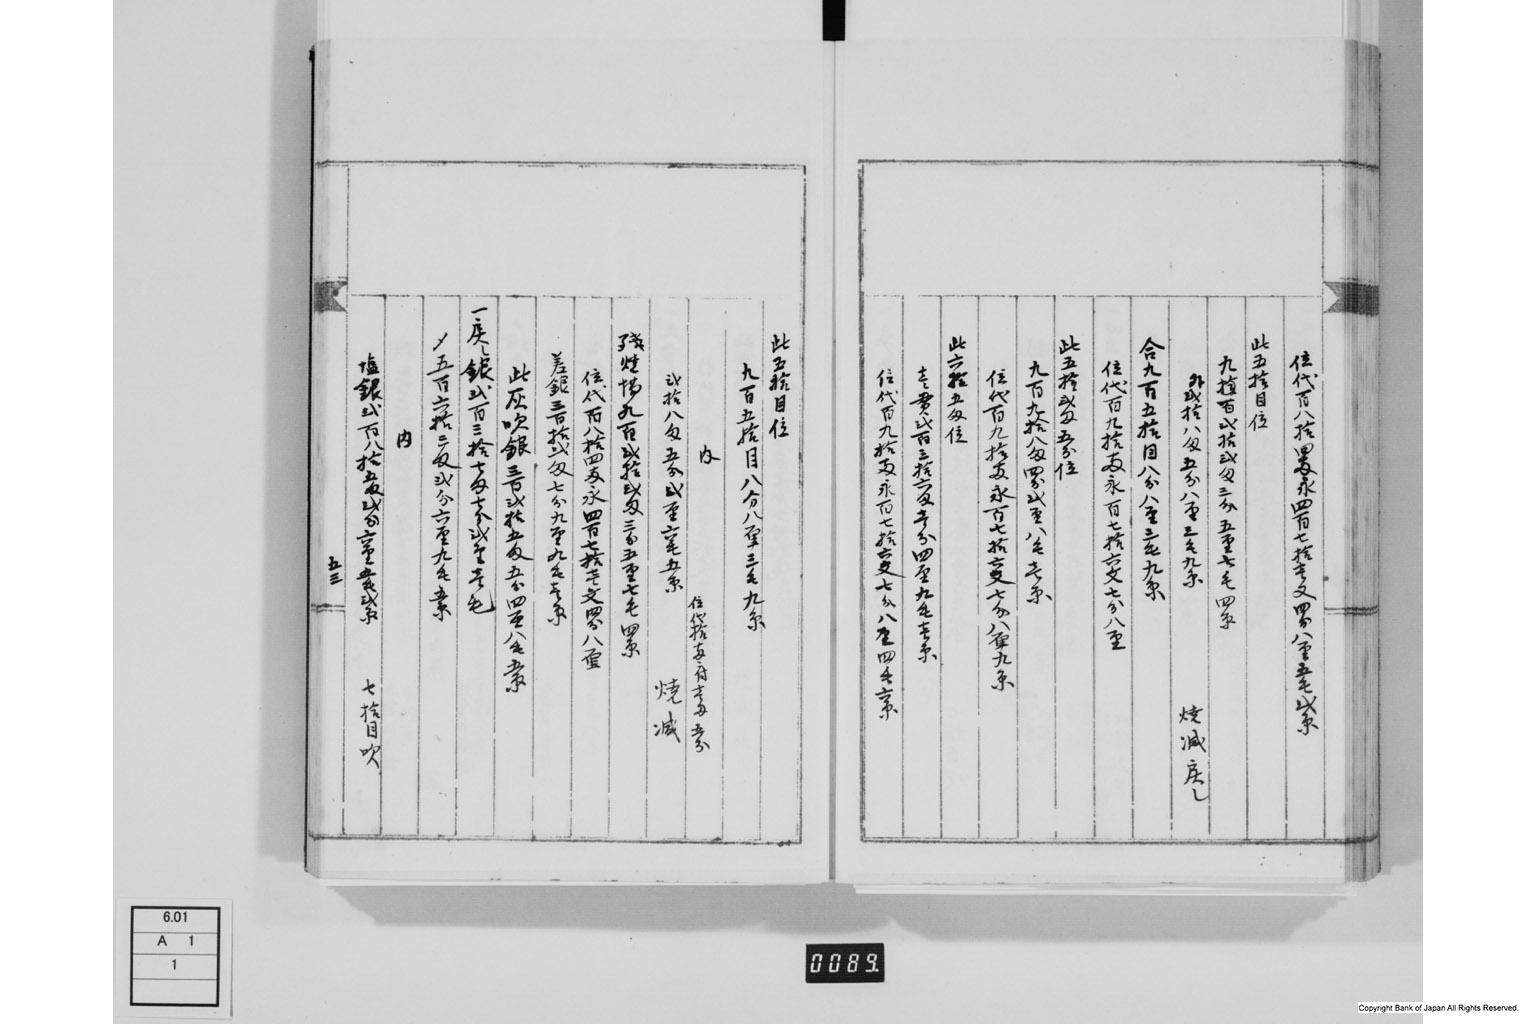 位代百八拾四両永四百七拾壱文四分八厘五毛弐糸
此五拾目位
九百弐拾弐匁三分五厘七毛四糸
外弐拾八匁五分八厘三毛九糸 焼減戻し
合九百五拾目八分八厘三毛九糸
位代百九拾両永百七拾六文七分八厘
此五拾弐匁五分位
九百九拾八匁四分弐厘八毛壱糸
位代百九拾両永百七拾六文七分八厘九糸
此六拾五匁位
壱貫弐百三拾六匁壱分四厘九毛壱糸
位代百九拾両永百七拾六文七分八厘四毛六糸
此五拾目位
九百五拾目八分八厘三毛九糸
内 位代拾両ニ付壱匁五分
弐拾八匁五分弐厘六毛五糸 焼減
残焼揚九百弐拾弐匁三分五厘七毛四糸
位代百八拾四両永四百七拾壱文四分八厘
差銀三百拾弐匁七分九厘九毛壱糸
此灰吹銀三百弐拾五匁五分四厘八毛五糸
一戻し銀弐百三拾七匁七分弐厘壱毛
〆五百六拾三匁弐分六厘九毛五糸
内
塩銀弐百八拾五匁弐分六厘五毛弐糸 七拾目吹
五三
6.01
A 1
1
0089
Copyright Bank of Japan All Rights Reserved.